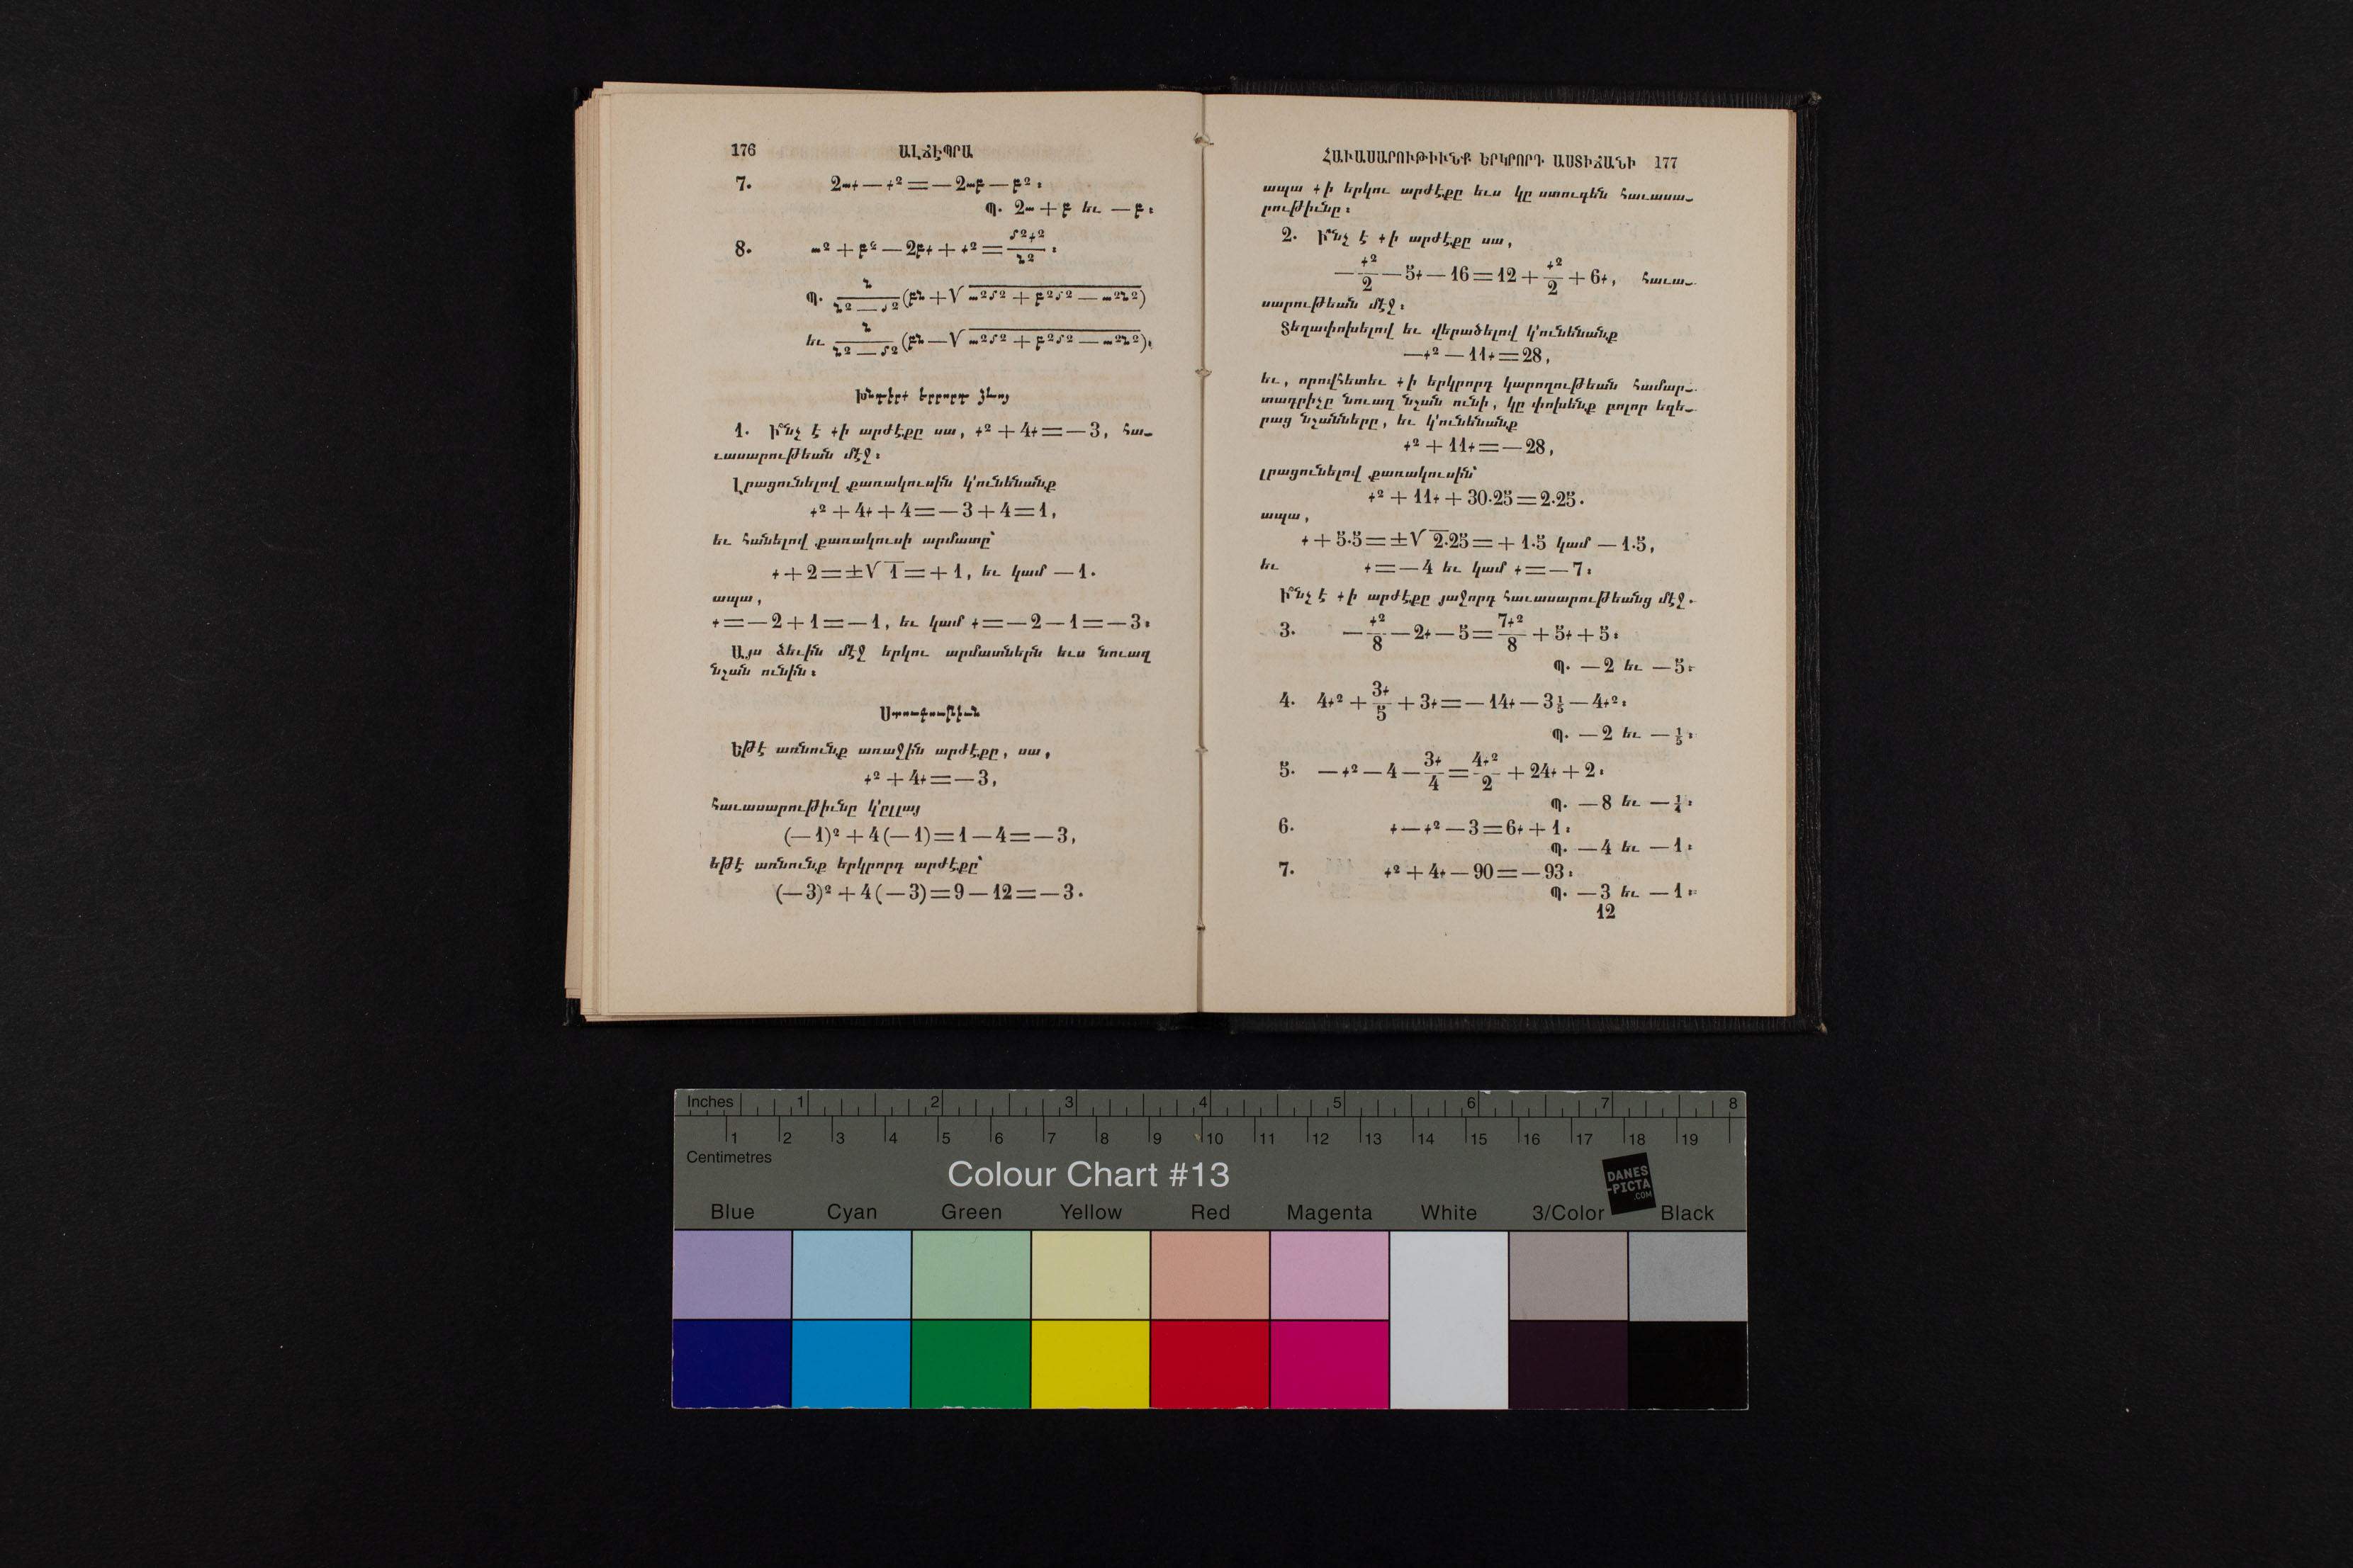 176 ԱԼՃԷՊՐԱ
7. 2ա֊ւ — ւ² = — 2աբ — բ²։
Պ. 2ա + բ եւ — բ։
8. ա² + բ² — 2բւ + ւ² = մ²ւ²/ն²։
Պ. ն/(ն² — մ²) (բն + √ա²մ² + բ²մ² — ա²ն²)
եւ ն/(ն² — մ²) (բն — √ա²մ² + բ²մ² — ա²ն²)։
Խնդիրք երրորդ ձեւոյ
1. Ի՞նչ է ւի արժէքը սա, ւ² + 4ւ = — 3, հա֊
ւասարութեան մէջ։
Լրացունելով քառակուսին կ՚ունենանք
ւ² + 4ւ + 4 = — 3 + 4 = 1,
եւ հանելով քառակուսի արմատը՝
ւ + 2 = ±√1 = + 1, եւ կամ — 1.
ապա,
ւ = — 2 + 1 = — 1, եւ կամ ւ = — 2 — 1 = — 3։
Այս ձեւին մէջ երկու արմատներն եւս նուազ
նշան ունին։
Ստուգութիւն
Եթէ առնունք առաջին արժէքը, սա,
ւ² + 4ւ = — 3,
հաւասարութիւնը կ՚ըլլայ
(— 1)² + 4 (— 1) = 1 — 4 = — 3,
եթէ առնունք երկրորդ արժէքը՝
(— 3)² + 4 (— 3) = 9 — 12 = — 3.
ՀԱՒԱՍԱՐՈՒԹԻՒՆՔ ԵՐԿՐՈՐԴ ԱՍՏԻՃԱՆԻ 177
ապա ւի երկու արժէքը եւս կը ստուգեն հաւասա֊
րութիւնը։
2. Ի՞նչ է ւի արժէքը սա,
— ւ²/2 — 5ւ — 16 = 12 + ւ²/2 + 6ւ, հաւա֊
սարութեան մէջ։
Տեղափոխելով եւ վերածելով կ՚ունենանք
— ւ² — 11ւ = 28,
եւ, որովհետեւ ւի երկրորդ կարողութեան համար֊
տադրիչը նուազ նշան ունի, կը փոխենք բոլոր եզե֊
րաց նշանները, եւ կ՚ունենանք
ւ² + 11ւ = — 28,
լրացունելով քառակուսին՝
ւ² + 11ւ + 30.25 = 2.25.
ապա,
ւ + 5.5 = ±√2.25 = + 1.5 կամ — 1.5,
եւ ւ = — 4 եւ կամ ւ = — 7։
Ի՞նչ է ւի արժէքը յաջորդ հաւասարութեանց մէջ.
3. — ւ²/8 — 2ւ — 5 = 7ւ²/8 + 5ւ + 5։
Պ. — 2 եւ — 5։
4. 4ւ² + 3ւ/5 + 3ւ = — 14ւ — 3 1/5 — 4ւ²։
Պ. — 2 եւ — 1/5։
5. — ւ² — 4 — 3ւ/4 = 4ւ²/2 + 24ւ + 2։
Պ. — 8 եւ — 1/4։
6. ւ — ւ² — 3 = 6ւ + 1։
Պ. — 4 եւ — 1։
7. ւ² + 4ւ — 90 = — 93։
Պ. — 3 եւ — 1։
12
Inches 1 2 3 4 5 6 7 8
1 2 3 4 5 6 7 8 9 10 11 12 13 14 15 16 17 18 19
Centimetres
Colour Chart #13
DANES
-PICTA
.COM
Blue Cyan Green Yellow Red Magenta White 3/Color Black